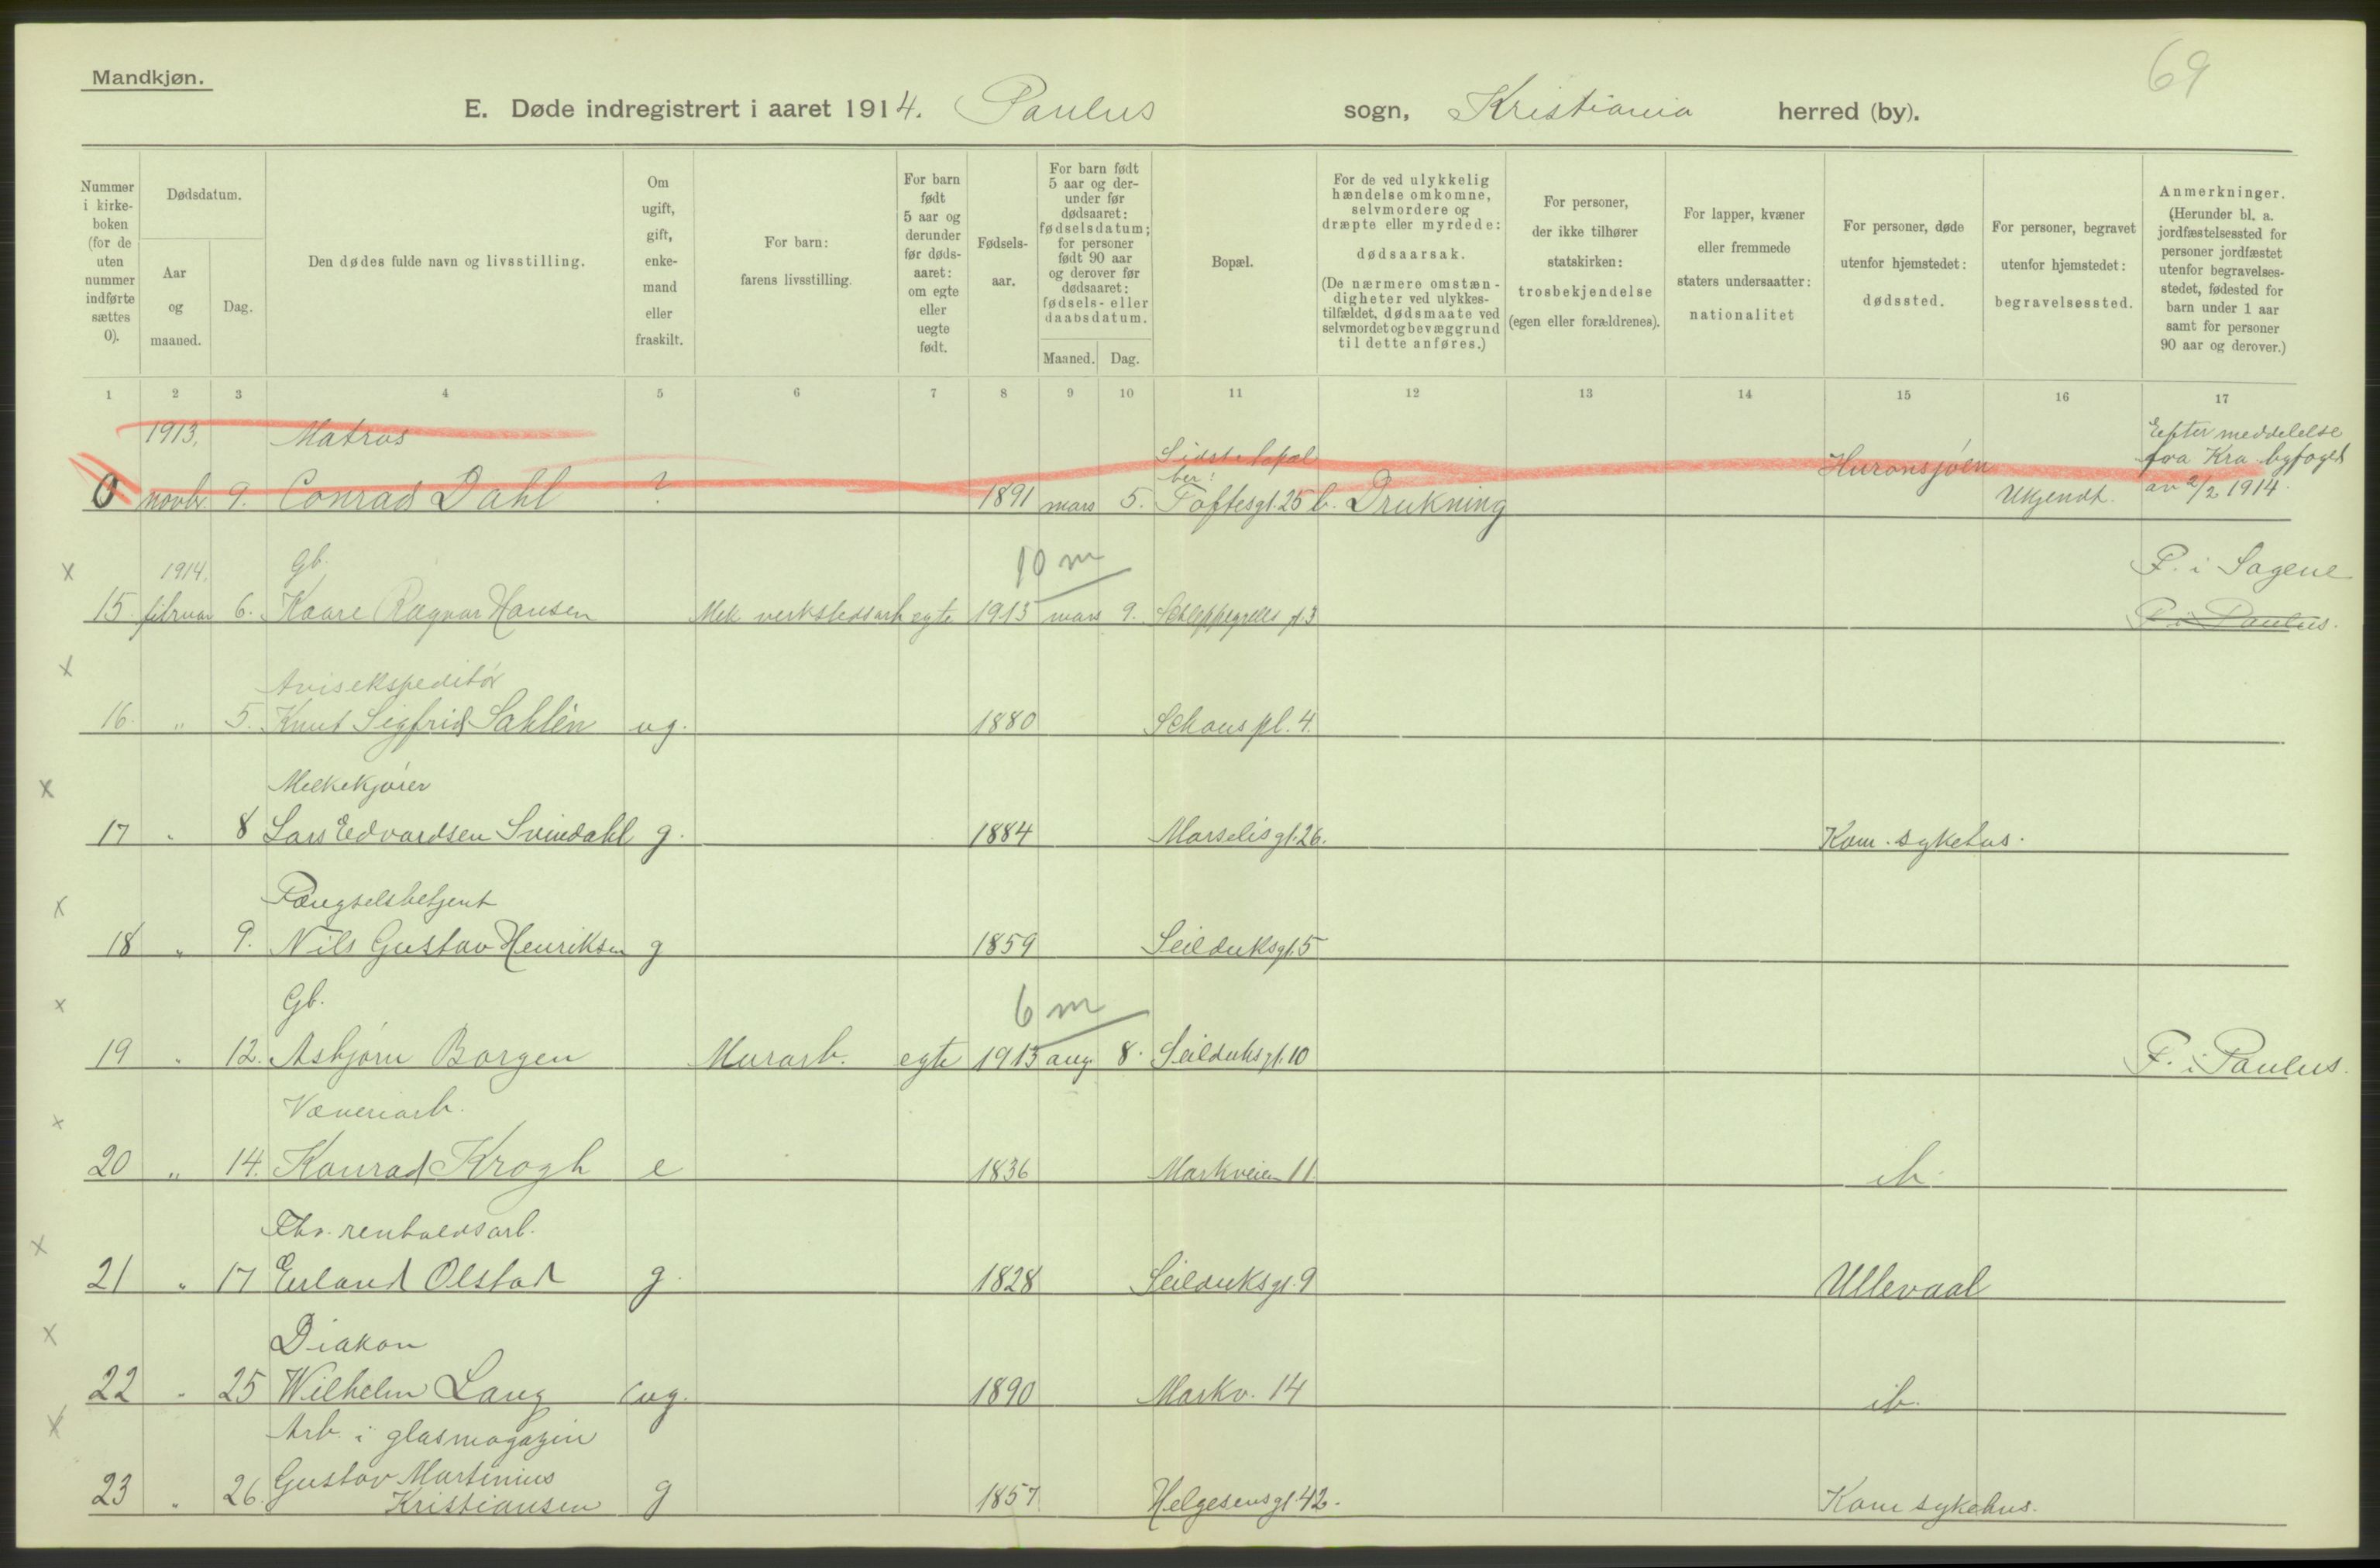 Mandkjøn.
69
E. Døde indregistrert i aaret 1914. Paulus sogn, Kristiania herred (by).
Nummer i kirkeboken (for de uten nummer indførte sættes 0).
Dødsdatum.
Aar og maaned.
Dag.
Den dødes fulde navn og livsstilling.
Om ugift, gift, enkemand eller fraskilt.
For barn: farens livsstilling.
For barn født 5 aar og derunder før dødsaaret: om egte eller uegte født.
Fødselsaar.
For barn født 5 aar og derunder før dødsaaret: fødselsdatum; for personer født 90 aar og derover før dødsaaret: fødsels- eller daabsdatum.
Maaned. Dag.
Bopæl.
For de ved ulykkelig hændelse omkomne, selvmordere og dræpte eller myrdede: dødsaarsak. (De nærmere omstændigheter ved ulykkestilfældet, dødsmaate ved selvmordet og bevæggrund til dette anføres.)
For personer, der ikke tilhører statskirken: trosbekjendelse (egen eller forældrenes).
For lapper, kvæner eller fremmede staters undersaatter: nationalitet
For personer, døde utenfor hjemstedet: dødssted.
For personer, begravet utenfor hjemstedet: begravelsessted.
Anmerkninger. (Herunder bl. a. jordfæstelsessted for personer jordfæstet utenfor begravelsesstedet, fødested for barn under 1 aar samt for personer 90 aar og derover.)
1 2 3 4 5 6 7 8 9 10 11 12 13 14 15 16 17
1913. Matros Sidste bopæl her: Efter meddelelse fra Kra byfoged av 2/2 1914.
0 novbr. 9. Conrad Dahl ? 1891 mars 5. Toftesgt. 25 b. Drukning Huronsjöen Ukjendt.
1914. Gb. 10 m F. i Sagene
15 februar 6. Kaare Ragnar Hansen Mek verkstedsarb egte 1913 mars 9. Schleppegrells gt. 3 F. i Paulus.
Avisekspeditör
16. " 5. Knut Sigfrid Sahlén ug. 1880 Schous pl. 4.
Melkekjører
17 " 8 Lars Edvardsen Svindahl g. 1884 Marselisgt. 26. Kom. sykehus.
Fængselsbetjent
18 " 9. Nils Gustav Henriksen g 1859 Seilduksgt. 5
Gb. 6 m
19 " 12. Asbjørn Borgen Murarb. egte 1913 aug. 8. Seilduksgt. 10 F. i Paulus.
Væveriarb.
20 " 14. Konrad Krogh e 1836 Markveien 11. ib.
Fhv. renholdsarb.
21 " 17 Erland Olstad g. 1828 Seilduksgt. 9 Ullevaal
Diakon
22 " 25 Wilhelm Lang ug. 1890 Markv. 14 ib.
Arb. i glasmagazin
23 " 26. Gustav Martinius
Kristiansen g 1857 Helgesensgt. 42. Kom sykehus.